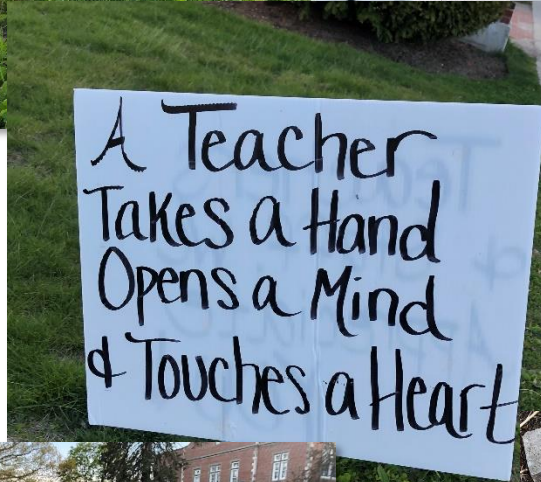 A Teacher
Takes a Hand
Opens a Mind
& Touches a Heart